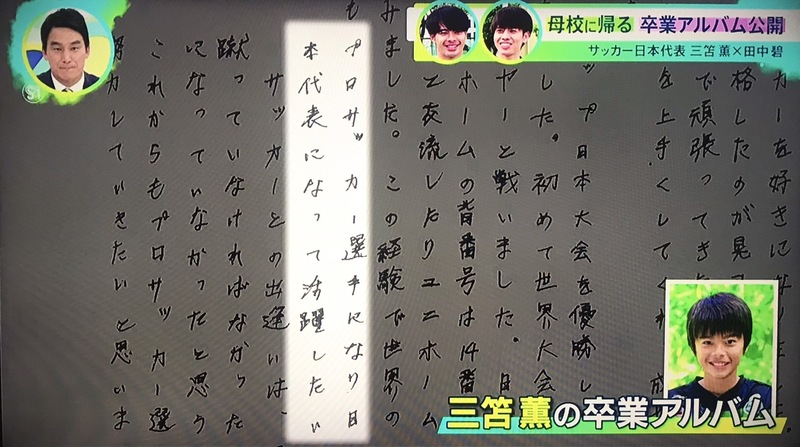 母校に帰る 卒業アルバム公開
サッカー日本代表 三笘 薫×田中碧
カーを好きにな
格したのが
で頑張ってきた
を上手くしてくれ
ップ日本大会を優勝し
した。初めて世界大会
ヤーと戦いました。日
ホームの背番号は14番
交流したりユニホーム
みました。この経験で世界の
も
プロサッカー選手になり日
本代表になって活躍したい
サッカーとの出逢いは、
蹴っていなければなかった
になっていなかったと思う
これからもプロサッカー選
努力していきたいと思いま
三笘 薫の卒業アルバム